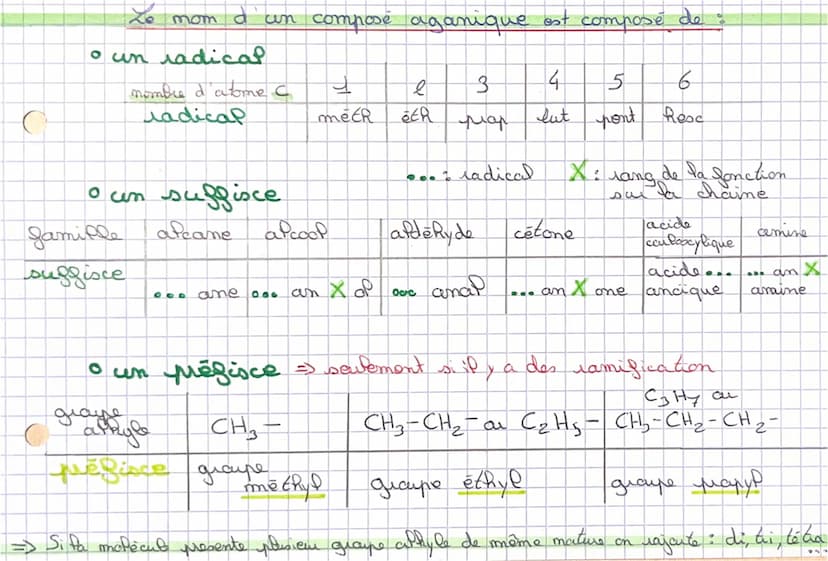 Le nom d'un composé organique est composé de :
• un radical
nombre d'atome C 1 2 3 4 5 6
radical méth éth prop but pent hexc
... : radical X : rang de la fonction
sur la chaine
• un suffixe
famille alcane alcool aldéhyde cétone acide carboxylique amine
suffixe ... ane ... an X ol ... anal ... an X one acide ... anoïque ... an X amine
• un préfixe => seulement si il y a des ramification
groupe alkyle CH3- CH3-CH2- ou C2H5- C3H7 ou CH3-CH2-CH2-
préfixe groupe méthyl groupe éthyl groupe propyl
=> Si la molécul presente plusieur groupe alkyle de même nature on rajoute : di, tri, tétra ...